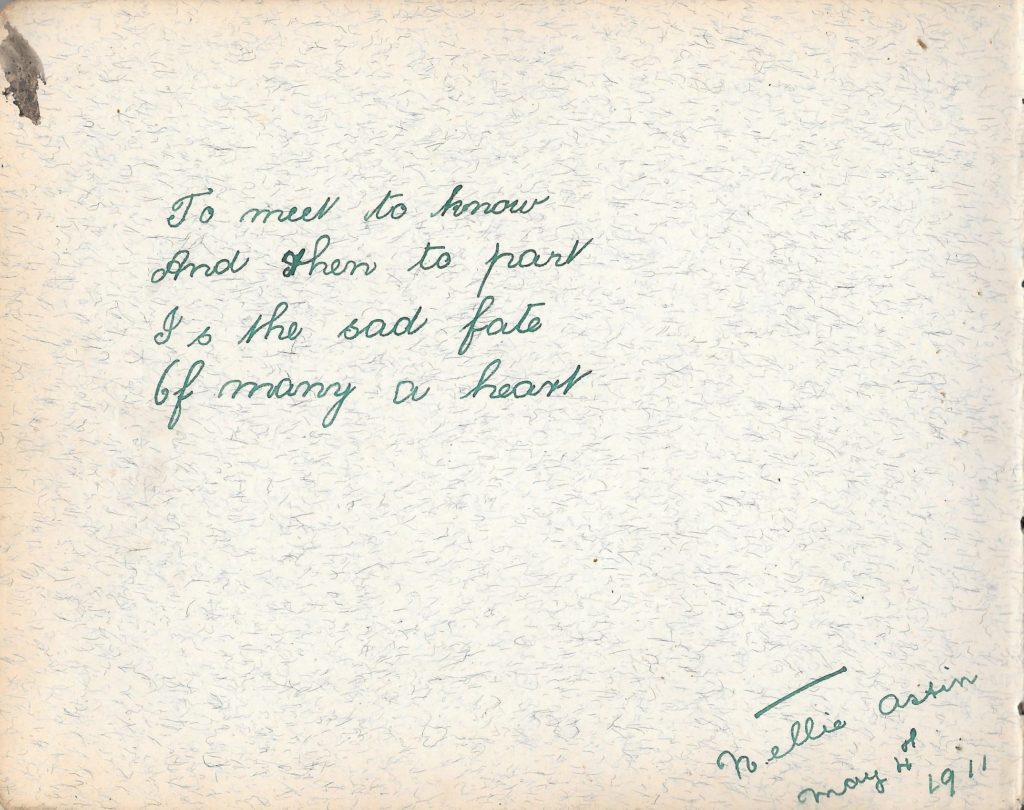 To meet to know
And then to part
Is the sad fate
Of many a heart
Nellie Astin
May 1911